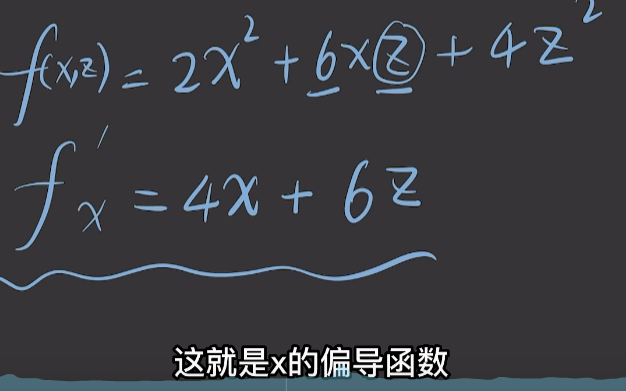 f(x,z) = 2x² + 6xz + 4z²
f'x = 4x + 6z
这就是x的偏导函数